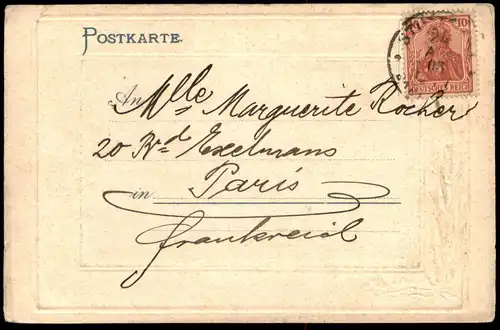 POSTKARTE.
10
24
03
DEUTSCHES REICH
An Mlle Marguerite Rocher
20 Bd Exelmans
in Paris
Frankreich